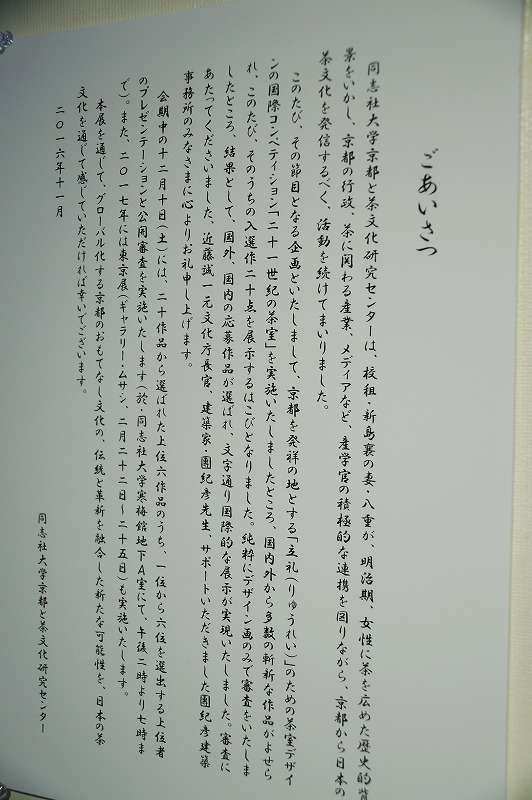 ごあいさつ
同志社大学京都と茶文化研究センターは、校祖・新島襄の妻・八重が、明治期、女性に茶を広めた歴史的背
景をいかし、京都の行政、茶に関わる産業、メディアなど、産学官の積極的な連携を図りながら、京都から日本の
茶文化を発信するべく、活動を続けてまいりました。
このたび、その節目となる企画といたしまして、京都を発祥の地とする「立礼(りゅうれい)」のための茶室デザイ
ンの国際コンペティション「二十一世紀の茶室」を実施いたしましたところ、国内外から多数の斬新な作品がよせら
れ、このたび、そのうちの入選作二十点を展示するはこびとなりました。純粋にデザイン画のみで審査をいたしま
したところ、結果として、国外、国内の応募作品が選ばれ、文字通り国際的な展示が実現いたしました。審査に
あたってくださいました、近藤誠一元文化庁長官、建築家・團紀彦先生、サポートいただきました團紀彦建築
事務所のみなさまに心よりお礼申し上げます。
会期中の十二月十日(土)には、二十作品から選ばれた上位六作品のうち、一位から六位を選出する上位者
のプレゼンテーションと公開審査を実施いたします(於・同志社大学寒梅館地下A室にて、午後二時より七時ま
で)。また、二〇一七年には東京展(ギャラリー・ムサシ、二月二十二日〜二十五日)も実施いたします。
本展を通じて、グローバル化する京都のおもてなし文化の、伝統と革新を融合した新たな可能性を、日本の茶
文化を通じて感じていただければ幸いでございます。
二〇一六年十一月
同志社大学京都と茶文化研究センター